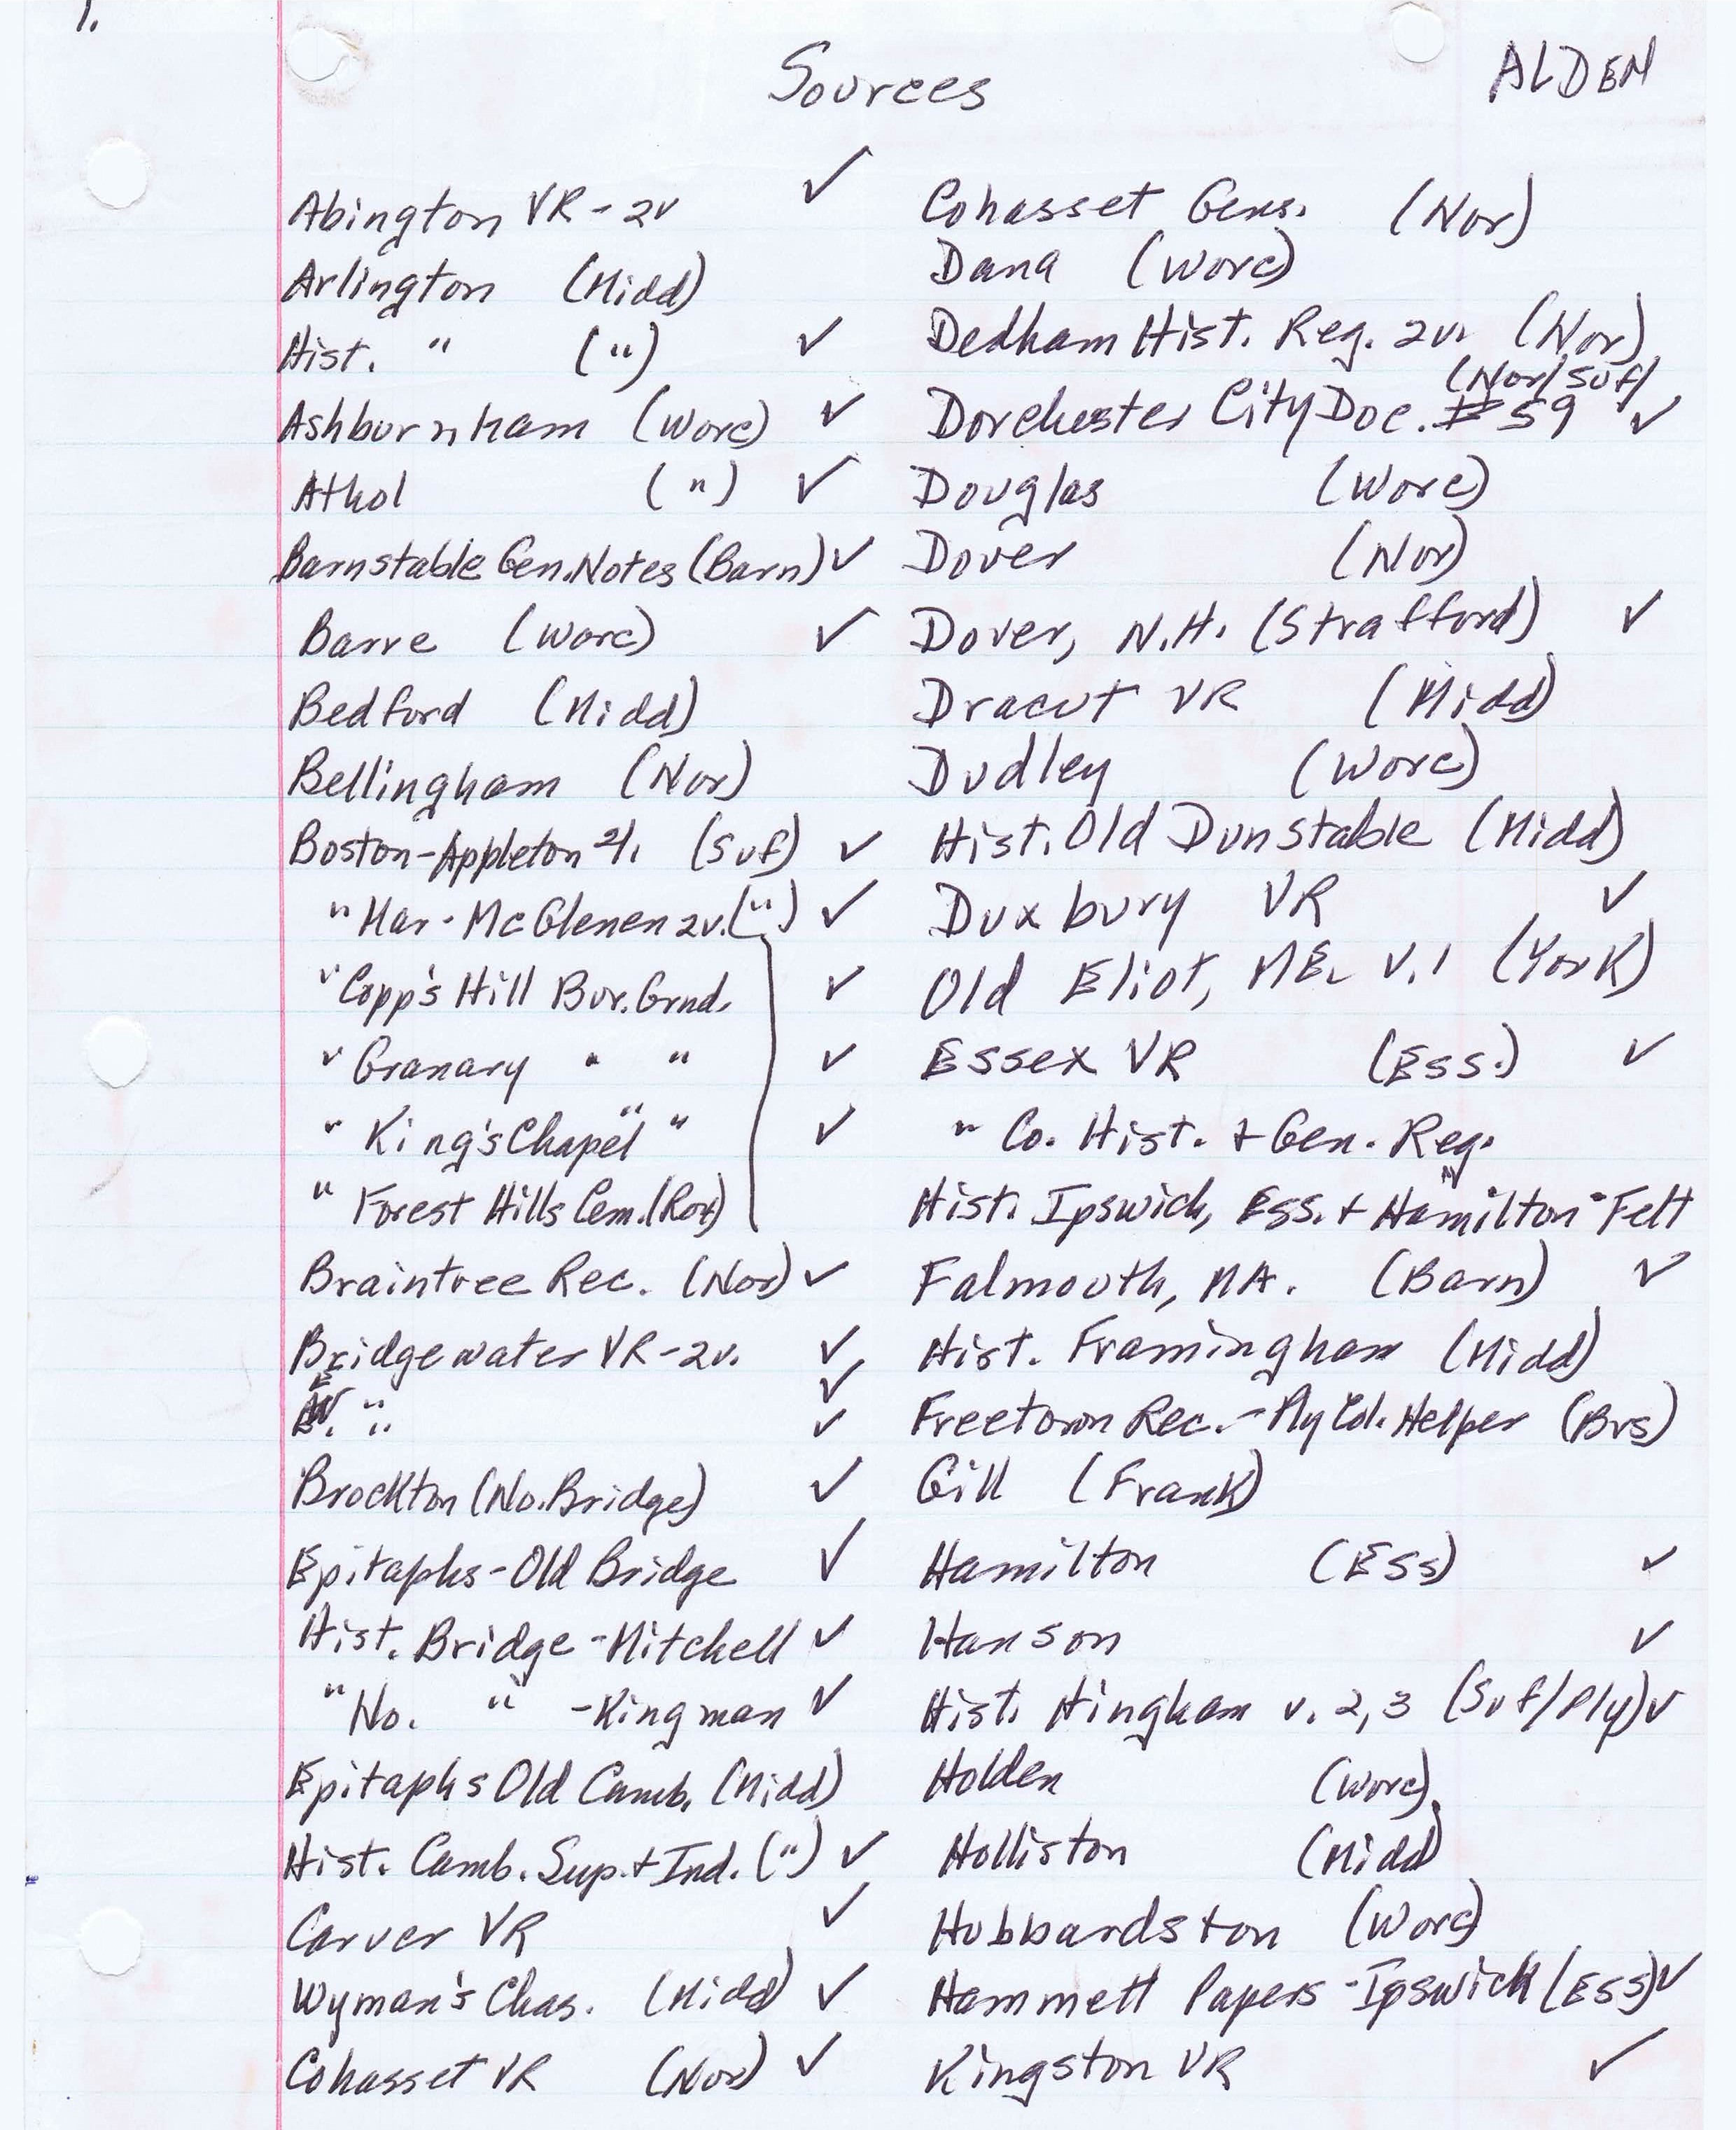 1.
Sources
ALDEN
Abington VR - 2v ✓
Arlington (Midd)
Hist. " (") ✓
Ashburnham (Worc) ✓
Athol (") ✓
Barnstable Gen. Notes (Barn) ✓
Barre (Worc) ✓
Bedford (Midd)
Bellingham (Nor)
Boston-Appleton (Suf) ✓
" Mar - McGlenen 2v. (") ✓
" Copp's Hill Bur. Grnd. ✓
" Granary " " ✓
" King's Chapel " " ✓
" Forest Hills Cem. (Rox)
Braintree Rec. (Nor) ✓
Bridgewater VR - 2v. ✓
E. ✓
W. " ✓
Brockton (No. Bridge) ✓
Epitaphs - Old Bridge ✓
Hist. Bridge - Mitchell ✓
" No. " - Kingman ✓
Epitaphs Old Camb. (Midd)
Hist. Camb. Sup. + Ind. (") ✓
Carver VR ✓
Wyman's Chas. (Midd) ✓
Cohasset VR (Nor) ✓
Cohasset Gens. (Nor)
Dana (Worc)
Dedham Hist. Reg. 2v. (Nor)
(Nor/Suf/
Dorchester City Doc. #59 ✓
Douglas (Worc)
Dover (Nor)
Dover, N.H. (Strafford) ✓
Dracut VR (Midd)
Dudley (Worc)
Hist. Old Dunstable (Midd)
Duxbury VR ✓
Old Eliot, ME. v.1 (York)
Essex VR (Ess.) ✓
" Co. Hist. + Gen. Reg.
Hist. Ipswich, Ess. + Hamilton - Felt
Falmouth, MA. (Barn) ✓
Hist. Framingham (Midd)
Freetown Rec. - Ply Col. Helper (Brs)
Gill (Frank)
Hamilton (Ess) ✓
Hanson ✓
Hist. Hingham v. 2,3 (Suf/Ply) ✓
Holden (Worc)
Holliston (Midd)
Hubbardston (Worc)
Hammett Papers - Ipswich (Ess) ✓
Kingston VR ✓